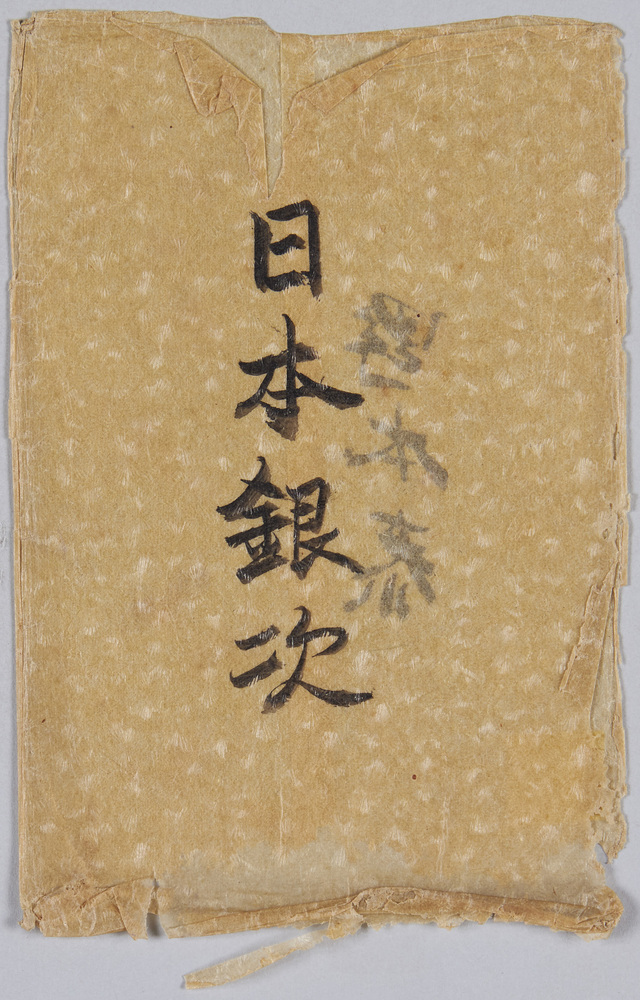 日本銀次